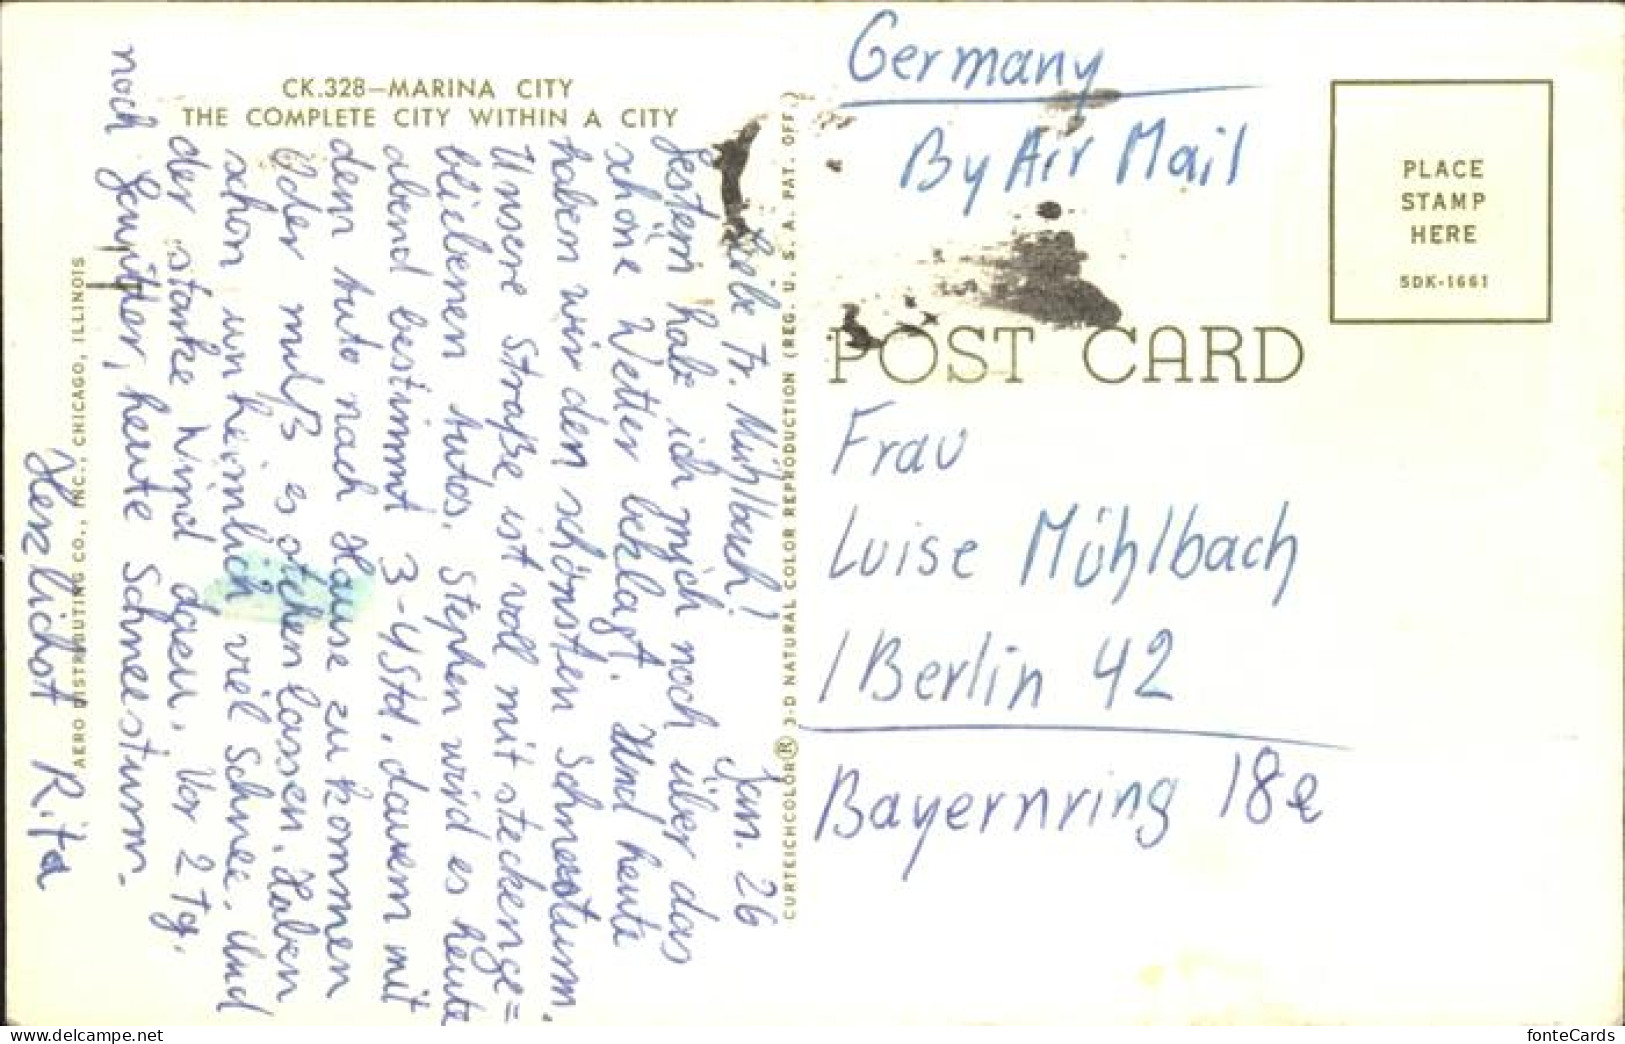 CK.328—MARINA CITY
THE COMPLETE CITY WITHIN A CITY
Jan. 26
Liebe Fr. Mühlbach!
Gestern hab ich mich noch über das
schöne Wetter beklagt. Und heute
haben wir den schönsten Schneesturm.
Unsere Straße ist voll mit steckenge=
bliebenen Autos. Stephen wird es heute
abend bestimmt 3-4 Std. dauern mit
dem Auto nach Hause zu kommen
Oder muß es stehen lassen. Haben
schon unheimlich viel Schnee. Und
der starke Wind dazu. Vor 2 Tg.
noch Gewitter, heute Schneesturm.
Herzlichst Rita
AERO DISTRIBUTING CO., INC., CHICAGO, ILLINOIS
CURTEICHCOLOR® 3-D NATURAL COLOR REPRODUCTION (REG. U. S. A. PAT. OFF.)
Germany
By Air Mail
PLACE
STAMP
HERE
5DK-1661
POST CARD
Frau
Luise Mühlbach
1 Berlin 42
Bayernring 18e
delcampe.net
fonteCards